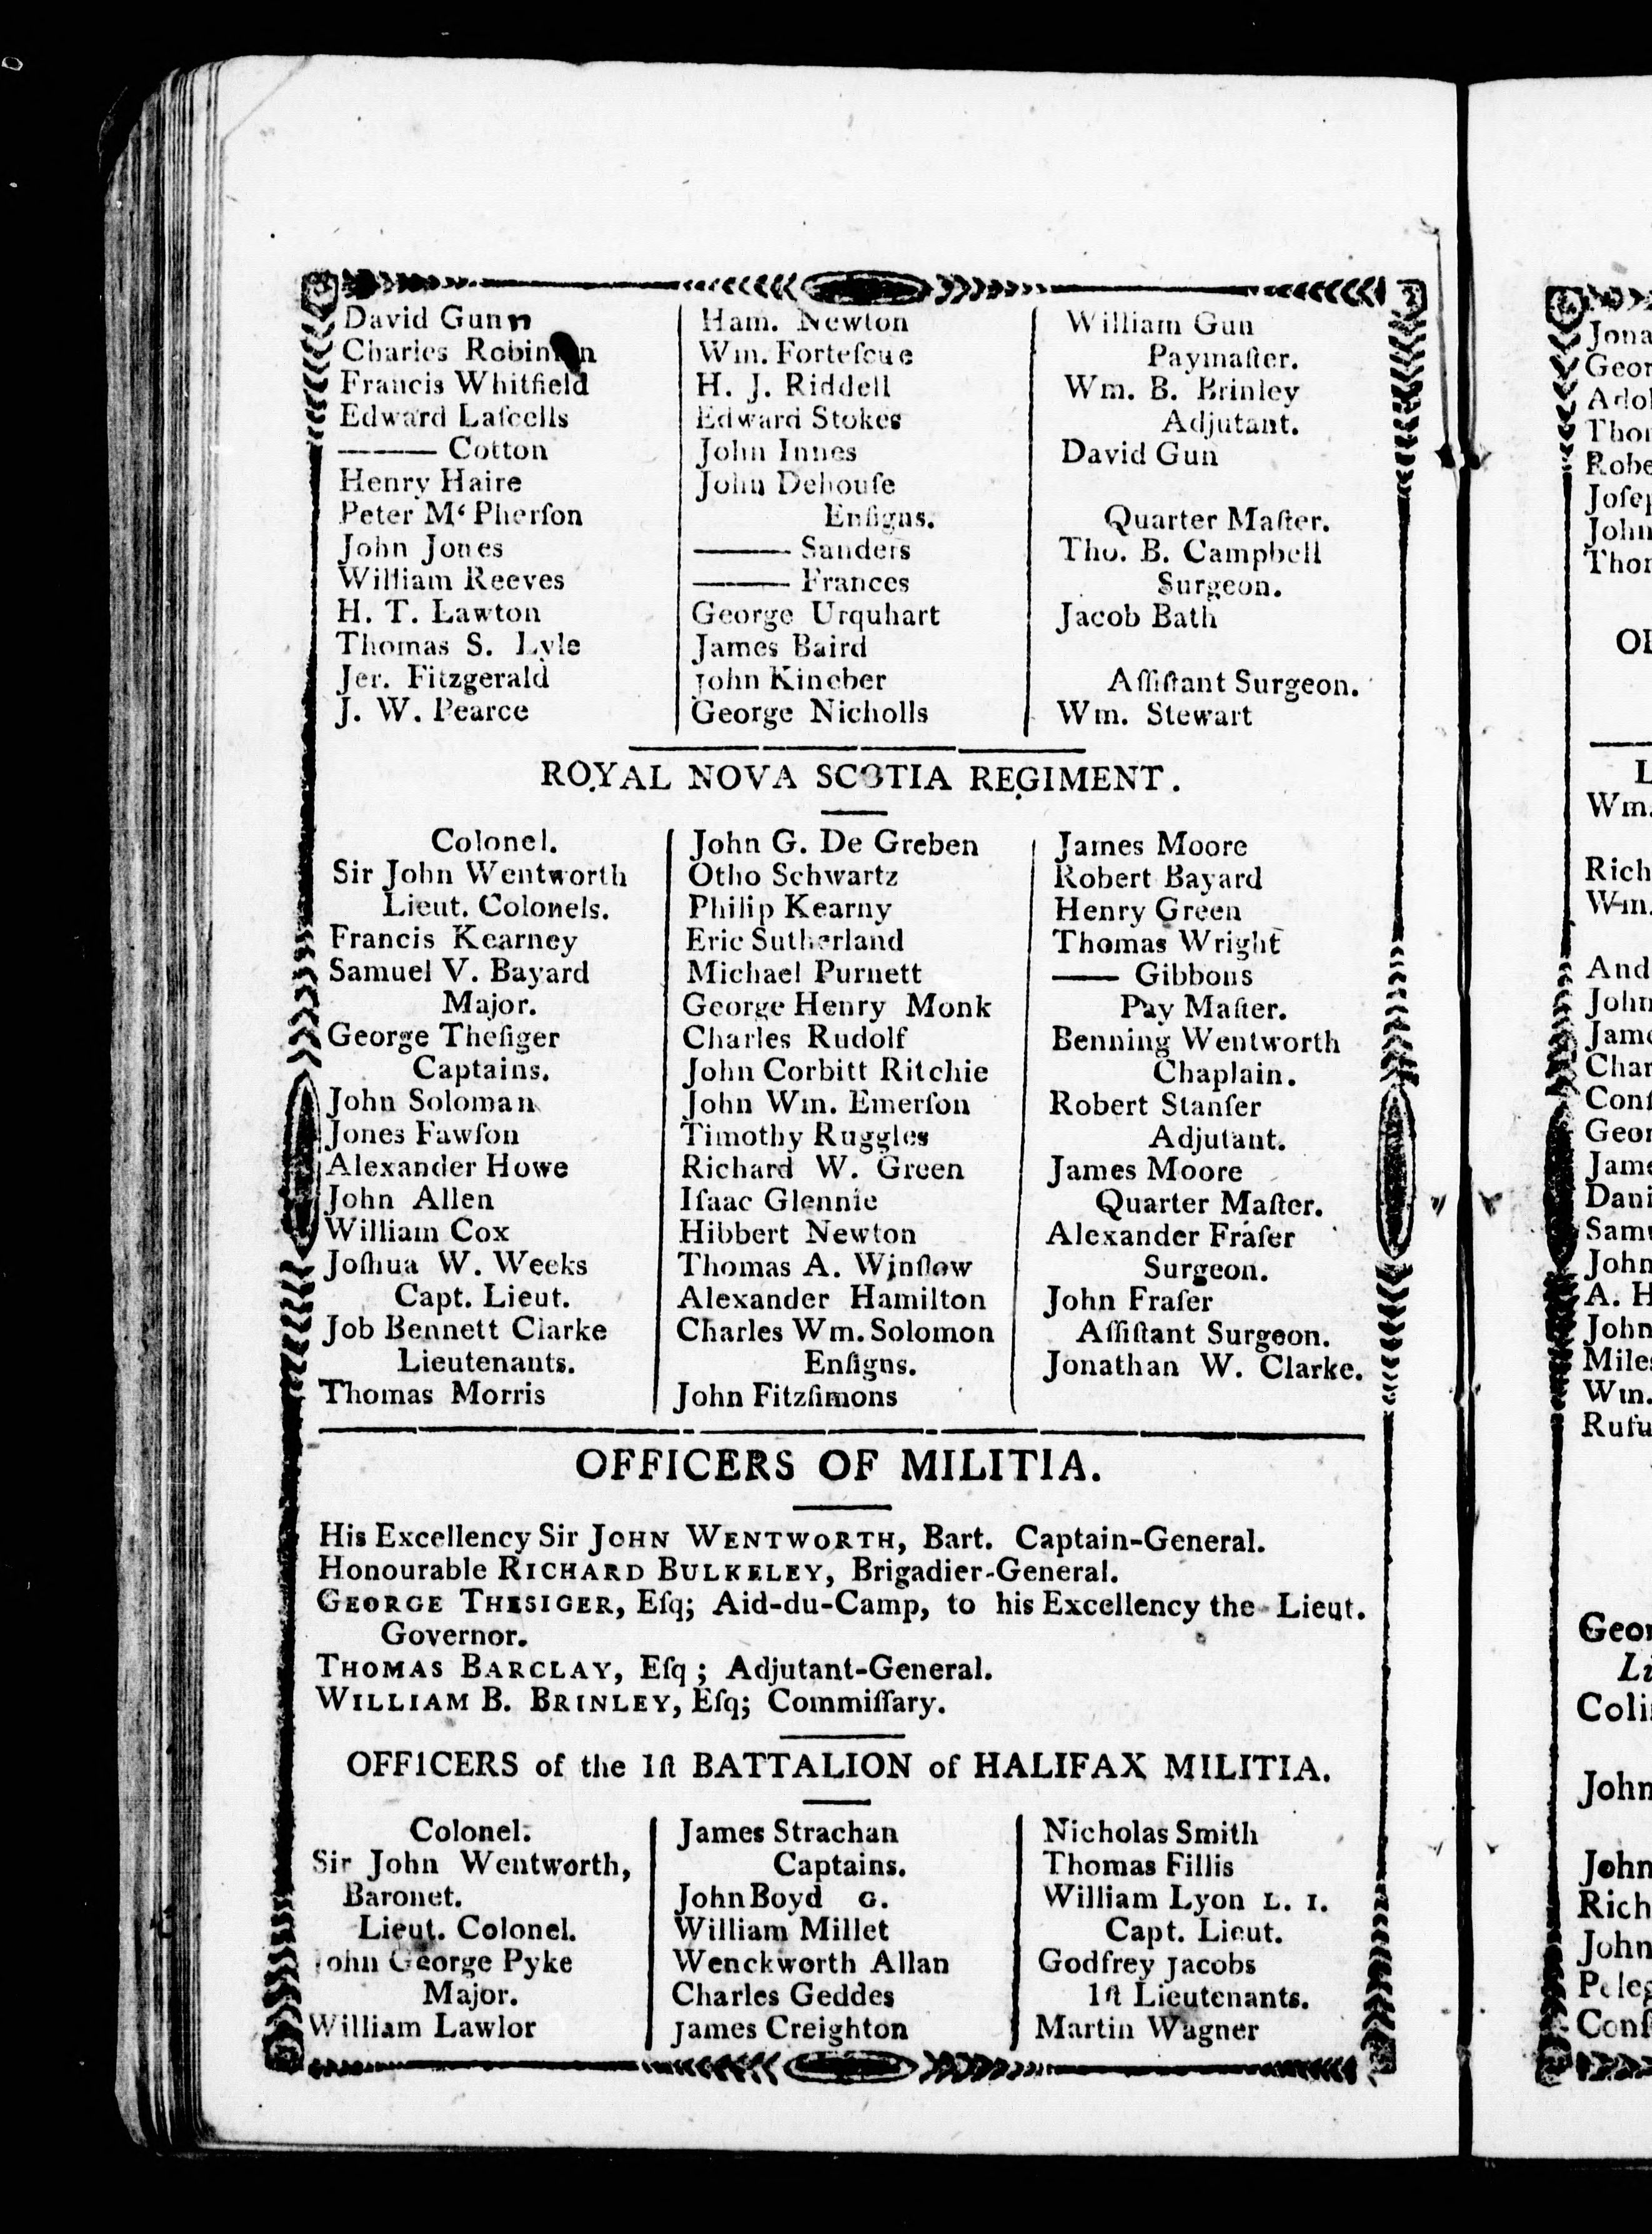 David Gunn
Charles
Francis Whitfield
Edward Laſcells
——— Cotton
Henry Haire
Peter Mc Pherſon
John Jones
William Reeves
H. T. Lawton
Thomas S. Lyle
Jer. Fitzgerald
J. W. Pearce
Ham. Newton
Wm. Forteſcue
H. J. Riddell
Edward Stokes
John Innes
John Dehouſe
Enſigns.
——— Sanders
——— Frances
George Urquhart
James Baird
John Kineber
George Nicholls
William Gun
Paymaſter.
Wm. B. Brinley
Adjutant.
David Gun
Quarter Maſter.
Tho. B. Campbell
Surgeon.
Jacob Bath
Aſſiſtant Surgeon.
Wm. Stewart
ROYAL NOVA SCOTIA REGIMENT.
Colonel.
Sir John Wentworth
Lieut. Colonels.
Francis Kearney
Samuel V. Bayard
Major.
George Theſiger
Captains.
John Soloman
Jones Fawſon
Alexander Howe
John Allen
William Cox
Joſhua W. Weeks
Capt. Lieut.
Job Bennett Clarke
Lieutenants.
Thomas Morris
John G. De Greben
Otho Schwartz
Philip Kearny
Eric Sutherland
Michael Purnett
George Henry Monk
Charles Rudolf
John Corbitt Ritchie
John Wm. Emerſon
Timothy Ruggles
Richard W. Green
Iſaac Glennie
Hibbert Newton
Thomas A. Winſlow
Alexander Hamilton
Charles Wm. Solomon
Enſigns.
John Fitzſimons
James Moore
Robert Bayard
Henry Green
Thomas Wright
—— Gibbons
Pay Maſter.
Benning Wentworth
Chaplain.
Robert Stanſer
Adjutant.
James Moore
Quarter Maſter.
Alexander Fraſer
Surgeon.
John Fraſer
Aſſiſtant Surgeon.
Jonathan W. Clarke.
OFFICERS OF MILITIA.
His Excellency Sir JOHN WENTWORTH, Bart. Captain-General.
Honourable RICHARD BULKELEY, Brigadier-General.
GEORGE THESIGER, Eſq; Aid-du-Camp, to his Excellency the Lieut.
Governor.
THOMAS BARCLAY, Eſq; Adjutant-General.
WILLIAM B. BRINLEY, Eſq; Commiſſary.
OFFICERS of the 1ſt BATTALION of HALIFAX MILITIA.
Colonel.
Sir John Wentworth,
Baronet.
Lieut. Colonel.
John George Pyke
Major.
William Lawlor
James Strachan
Captains.
John Boyd G.
William Millet
Wenckworth Allan
Charles Geddes
James Creighton
Nicholas Smith
Thomas Fillis
William Lyon L. I.
Capt. Lieut.
Godfrey Jacobs
1ſt Lieutenants.
Martin Wagner
Wm.
Wm.
John
John
John
Wm.
John
John
John